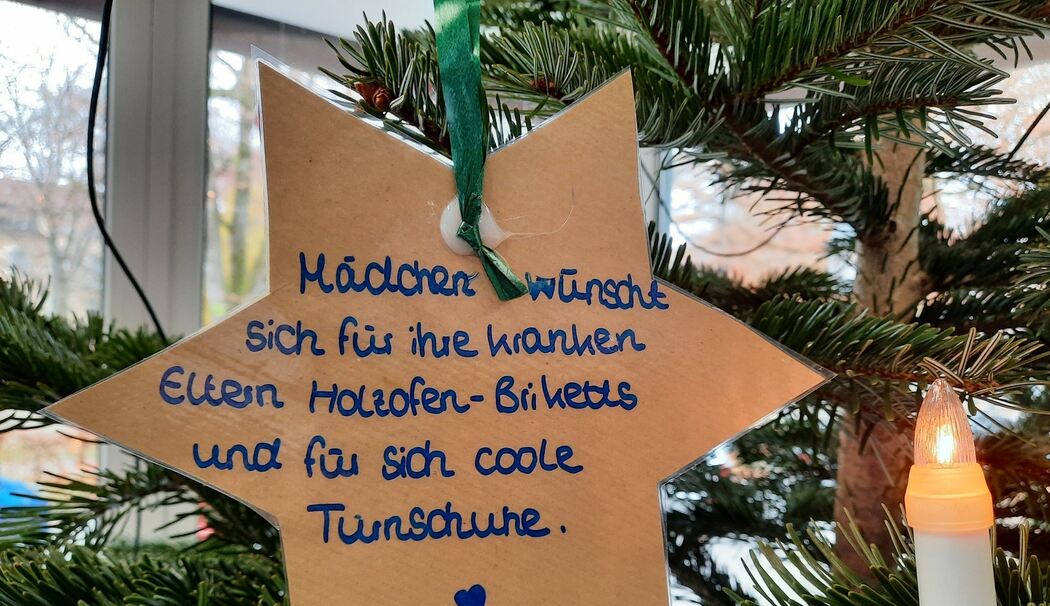 Mädchen wünscht
sich für ihre kranken
Eltern Holzofen-Briketts
und für sich coole
Turnschuhe.